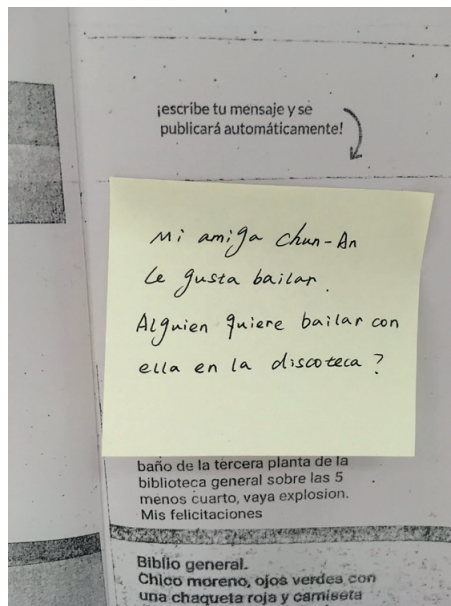 ¡escribe tu mensaje y se
publicará automáticamente!
Mi amiga Chun-An
Le gusta bailar.
Alguien quiere bailar con
ella en la discoteca?
baño de la tercera planta de la
biblioteca general sobre las 5
menos cuarto, vaya explosion.
Mis felicitaciones
Biblio general.
Chico moreno, ojos verdes con
una chaqueta roja y camiseta